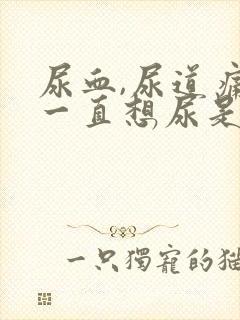 尿血,尿道痛
一直想尿是
一只獨寵的貓